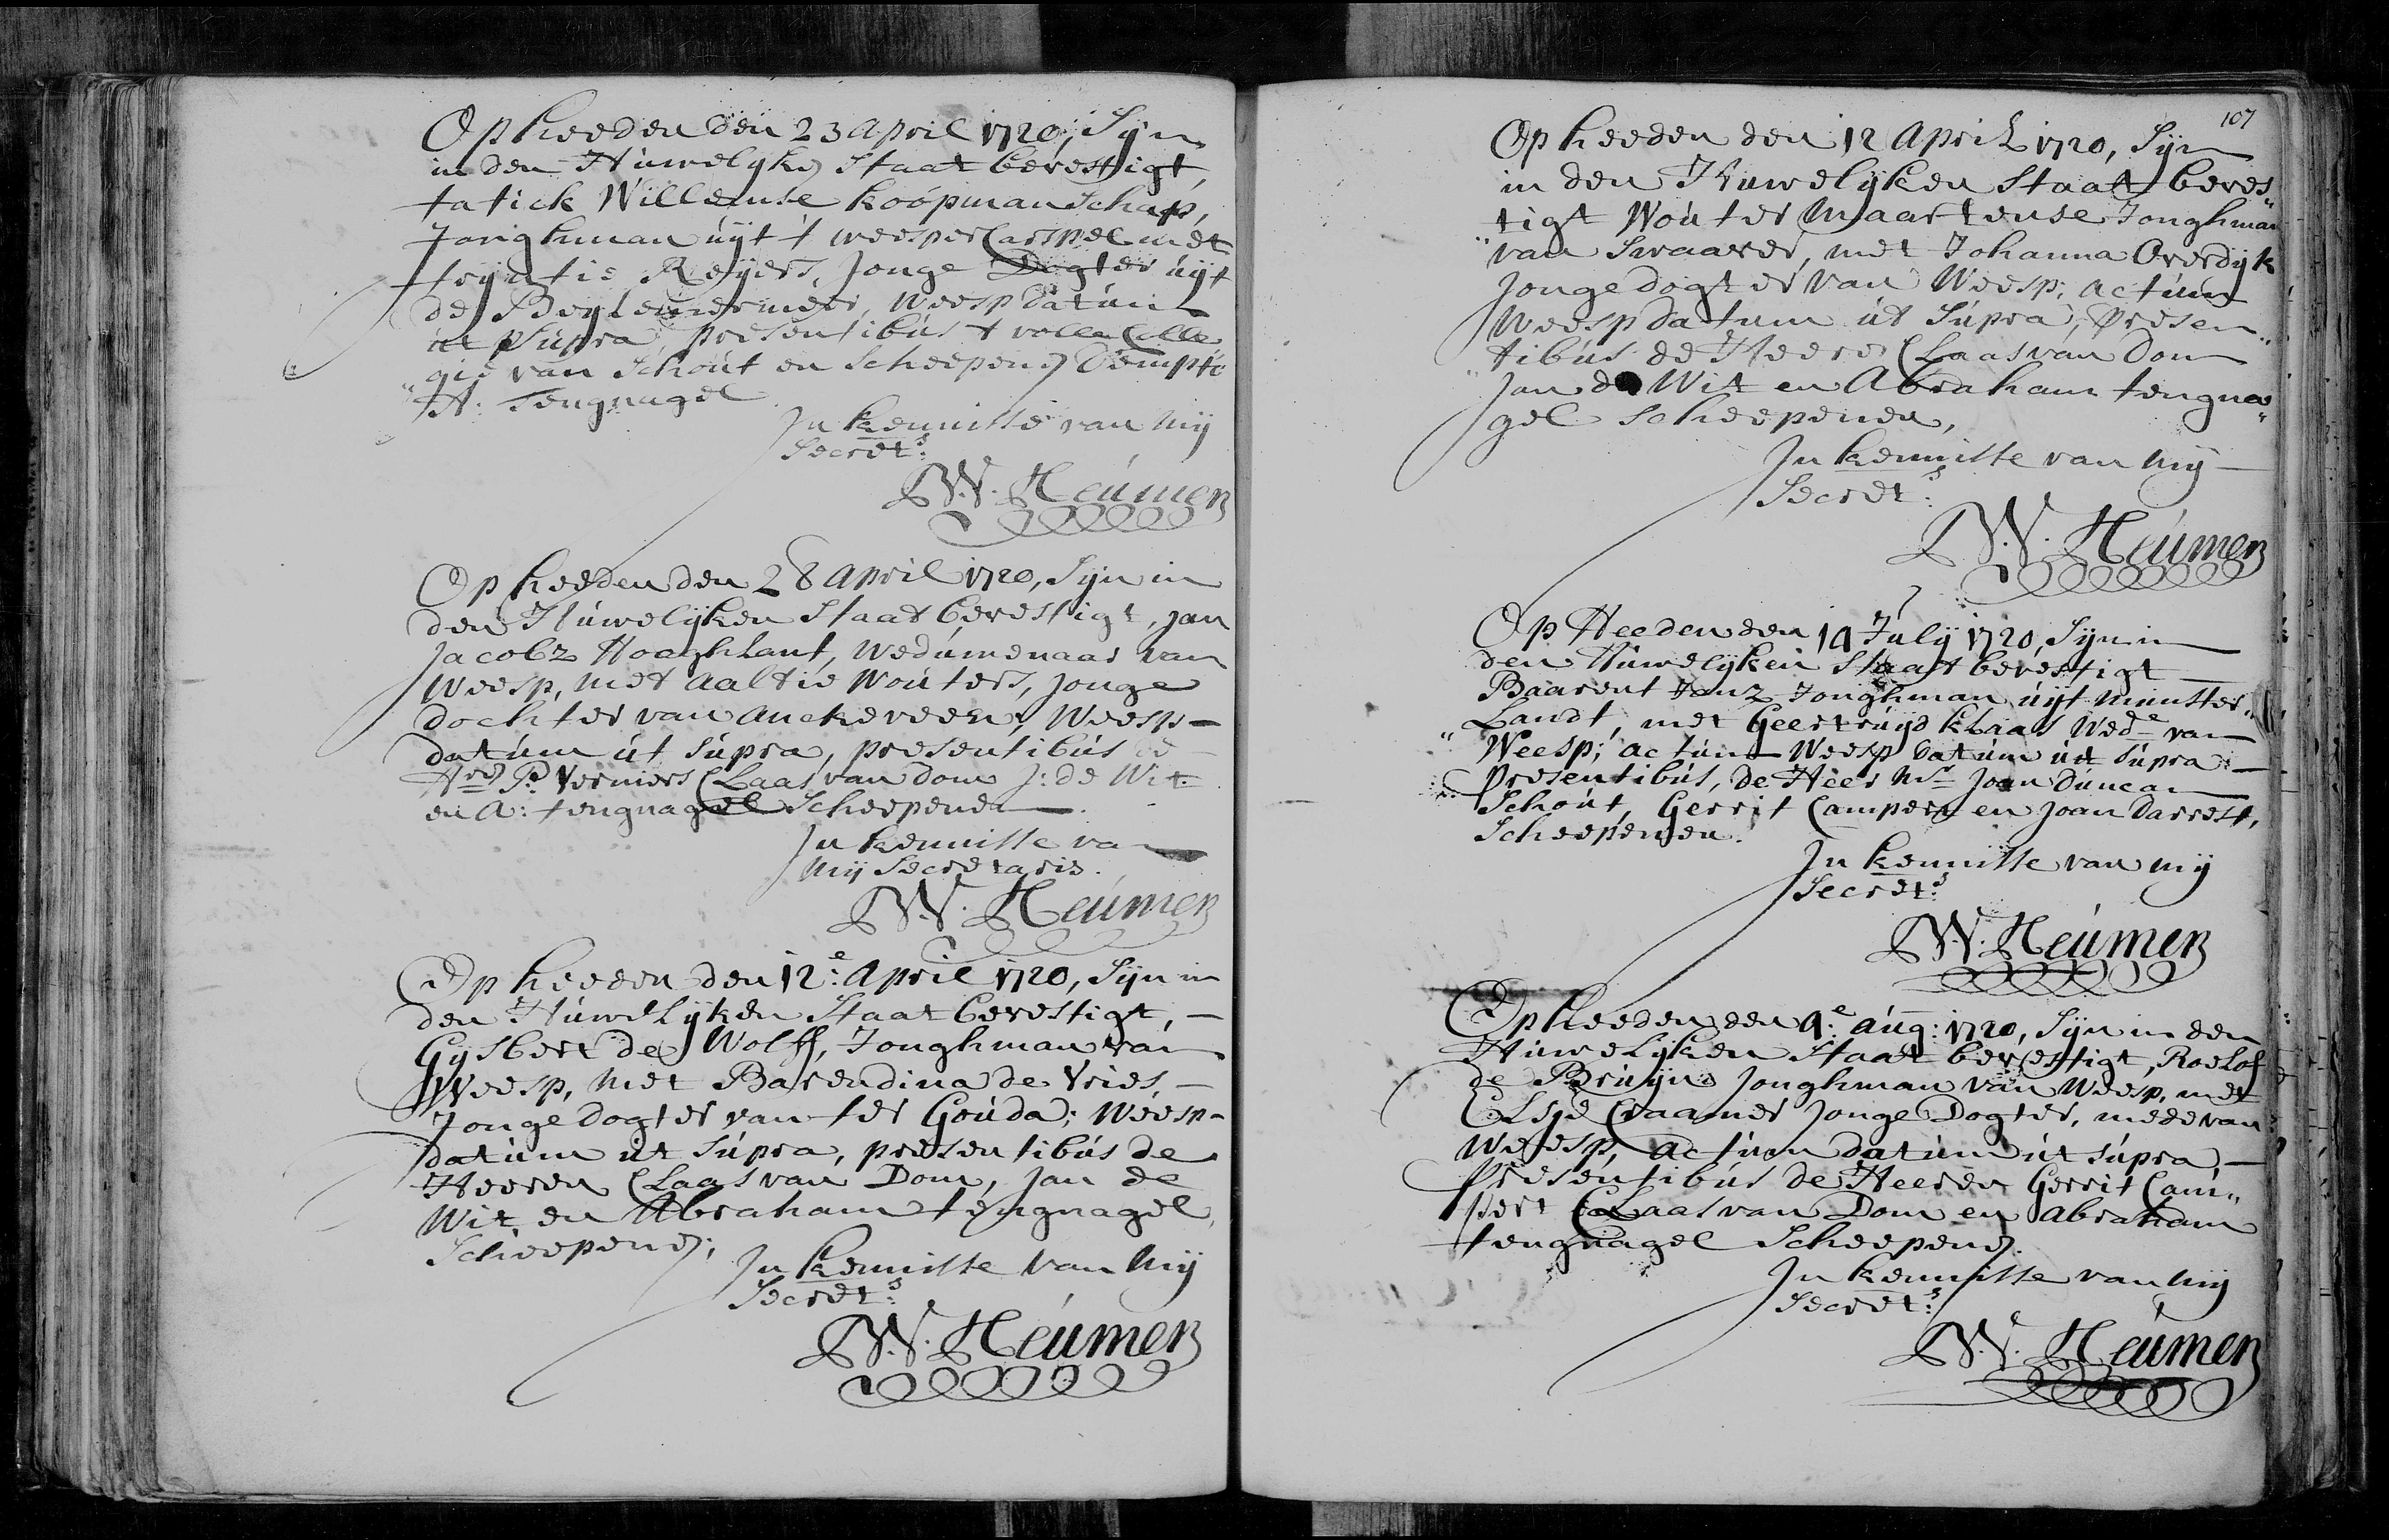 Op heeden den 23 April 1720, Sijn
in den Húwelyke Staat bevestigt,
Willemse koópmanschap,
Jonghman úÿt t weesper Carspel met
trijntie Reÿers, Jonge Dogter úÿt
de Beylemermeer, Weesp datúm
út Súpra, presentibús t volle Colle
gie van Schoút en Scheepens dempto
A: Tengnagel
In kennisse van mÿ
Secret:s
W. Heúmen
Op heeden den 28 April 1720, Sijn in
den Húwelijken Staat bevestigt, Jan
Jacobz Hooghlant, Wedúwenaar van
Weesp, met Aaltie Woúters, Jonge
dochter van Anckeveen, Weesp
datúm út súpra, presentibús de
Hren P. Verniers Claas van Dom J: de Wit
en A: tengnagel Scheepenen
In kennisse van
mij Secretaris.
W. Heúmen
Op heeden den 12:e April 1720, Sijn in
den Húwelijken Staat bevestigt,
Gijsbert de Wolff, Jonghman van
Weesp, met Barendina de Vries
Jonge dogter van ter Goúda; Weesp
datúm út súpra, presentibús de
Heeren Claas van Dom, Jan de
Wit en Abraham tengnagel
Scheepens;
In kennisse van mij
Secret:s
W. Heúmen
107
Op heeden den 12 April 1720, Sijn
in den Húwelijken Staat beves„
tigt Woúter Maartense Jonghman
„van Swaaver, met Johanna Overdijk
Jonge dogter van Weesp; actúm
Weesp datum út Súpra, Presen„
„tibús de Heere Claas van Dom
Jan de Wit en Abraham tengna„
gel scheepenen,
In kennisse van mij
Secret:s
W. Heúmen
Op Heeden den 19 Julij 1720, Sijn in
den Húwelijken Staat bevestigt
Baarent Janz Jonghman úijt munster„
„Landt, met Geertruijd klaas Wed:e van
Weesp; actúm Weesp datúm út súpra
Presentibús, de Heer Mr Joan Dúncan
Schoút, Gerrit Campert en Joan Darrest,
Scheepenen.
In kennisse van mij
Secret:s
W. Heúmen
Op heeden den 9:e aúg: 1720, Sijn in den
Húwelijken Staat bevestigt, Roelof
de Brúijn Jonghman van Weesp, met
Elsje Craamer Jonge Dogter, mede van
Weesp, actúm datúm út súpra,
Presentibús de Heeren Gerrit Cam„
pert Claas van Dom en Abraham
tengnagel Scheepens.
In kennisse van mij
Secret:s
W. Heúmen